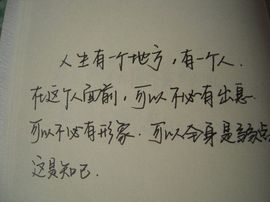 人生有一个地方，有一个人.
在这个人面前，可以不必有出息
可以不必有形象.可以全身是缺点
这是知己.